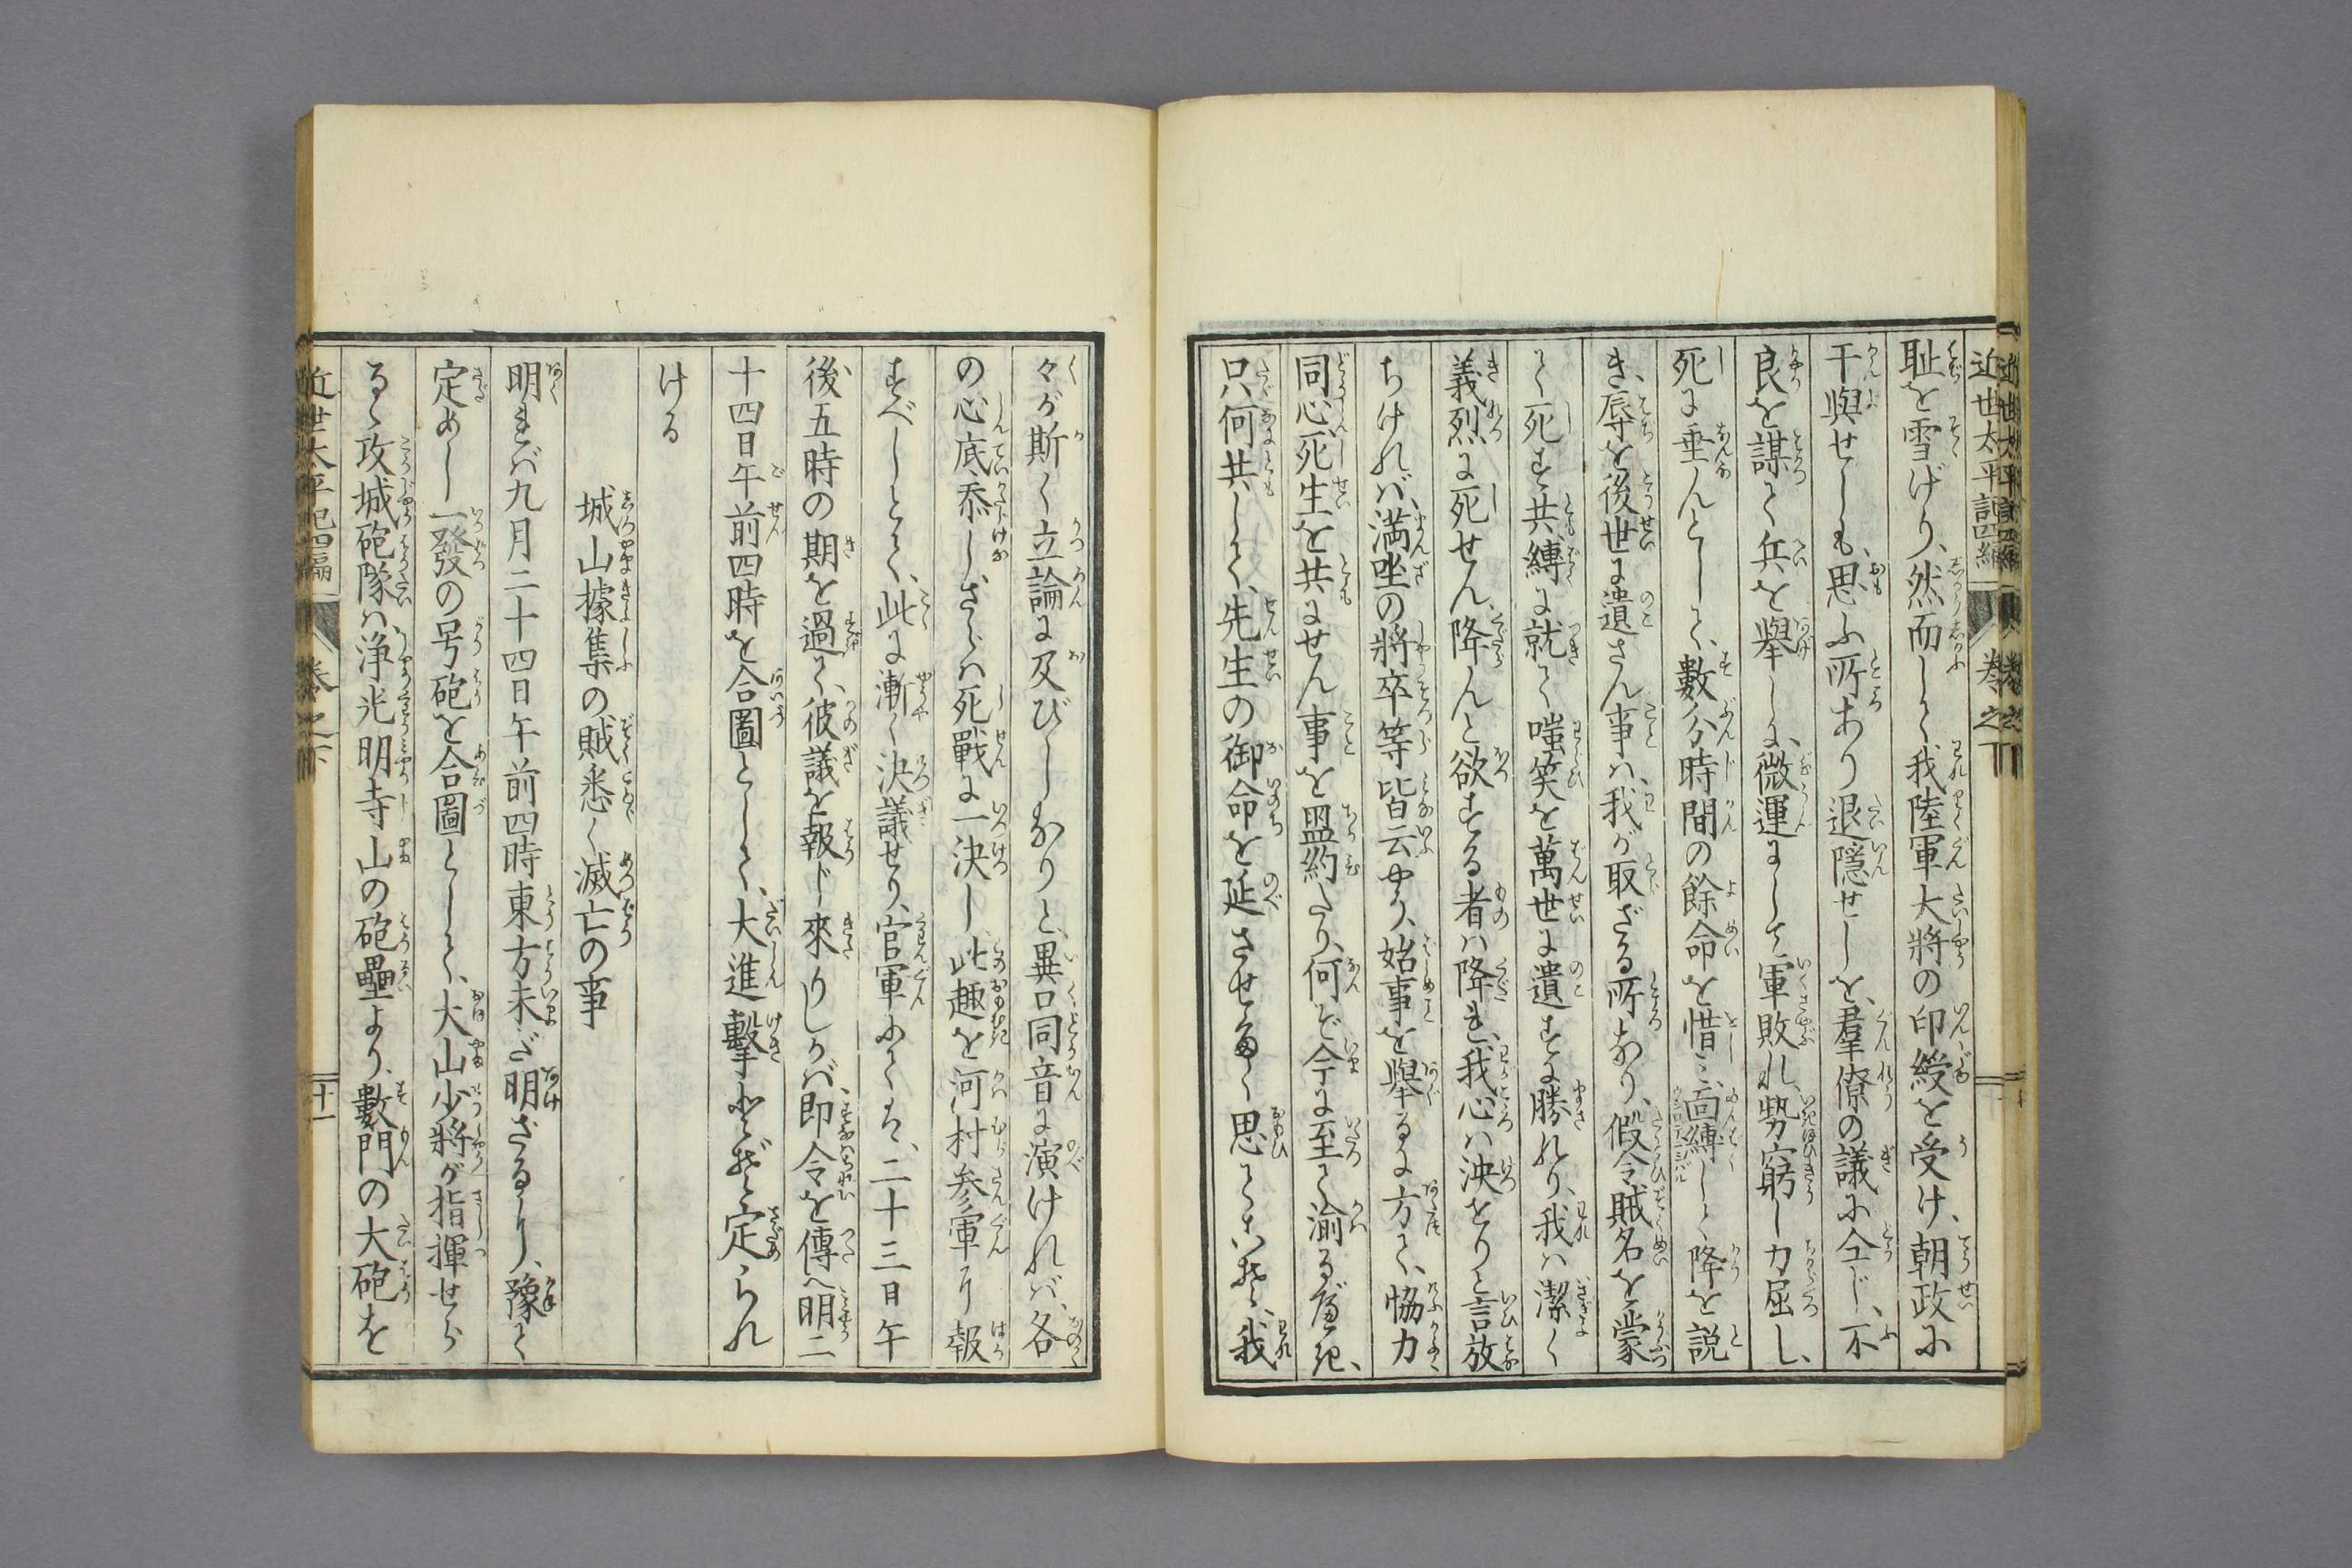 近世太平記四編
卷之下
耻を雪げり、然而して我陸軍大將の印綬を受け、朝政に
干與せしも、思ふ所あり退隱せしを、羣僚の議に仝じ、不
良を謀て兵を舉しに、微運にして軍敗れ、勢窮し力屈し、
死に垂んとして、數分時間の餘命を惜み、面縛して降を説
き、辱を後世に遺さん事は、我が取ざる所なり、假令賊名を蒙
て死す共、縛に就て嗤笑を萬世に遺すに勝れり、我は潔く
義烈に死せん、降んと欲する者は降れ、我心は決をりと言放
ちければ、満坐の將卒等皆云やう、始事を舉るに方て、恊力
同心死生を共にせん事を盟約たり、何ぞ今に至て渝るべき、
只何共して、先生の御命を延させ度く思てこそ、我
々が斯く立論に及びしなりと、異口同音に演ければ、各
の心底忝し、さらは死戰に一決し、此趣を河村参軍に報
すべしとて、此に漸く決議せり、官軍にては、二十三日午
後五時の期を過て、彼議を報じ來りしかば、即令を傳へ明二
十四日午前四時を合圖として、大進擊とぞ定られ
ける
城山據集の賊悉く滅亡の事
明れば九月二十四日午前四時東方未だ明ざるより、豫て
定めし一發の号砲を合圖として、大山少將が指揮せら
るゝ攻城砲隊は、浄光明寺山の砲壘より、數門の大砲を
近世太平記四編
卷之下
十一